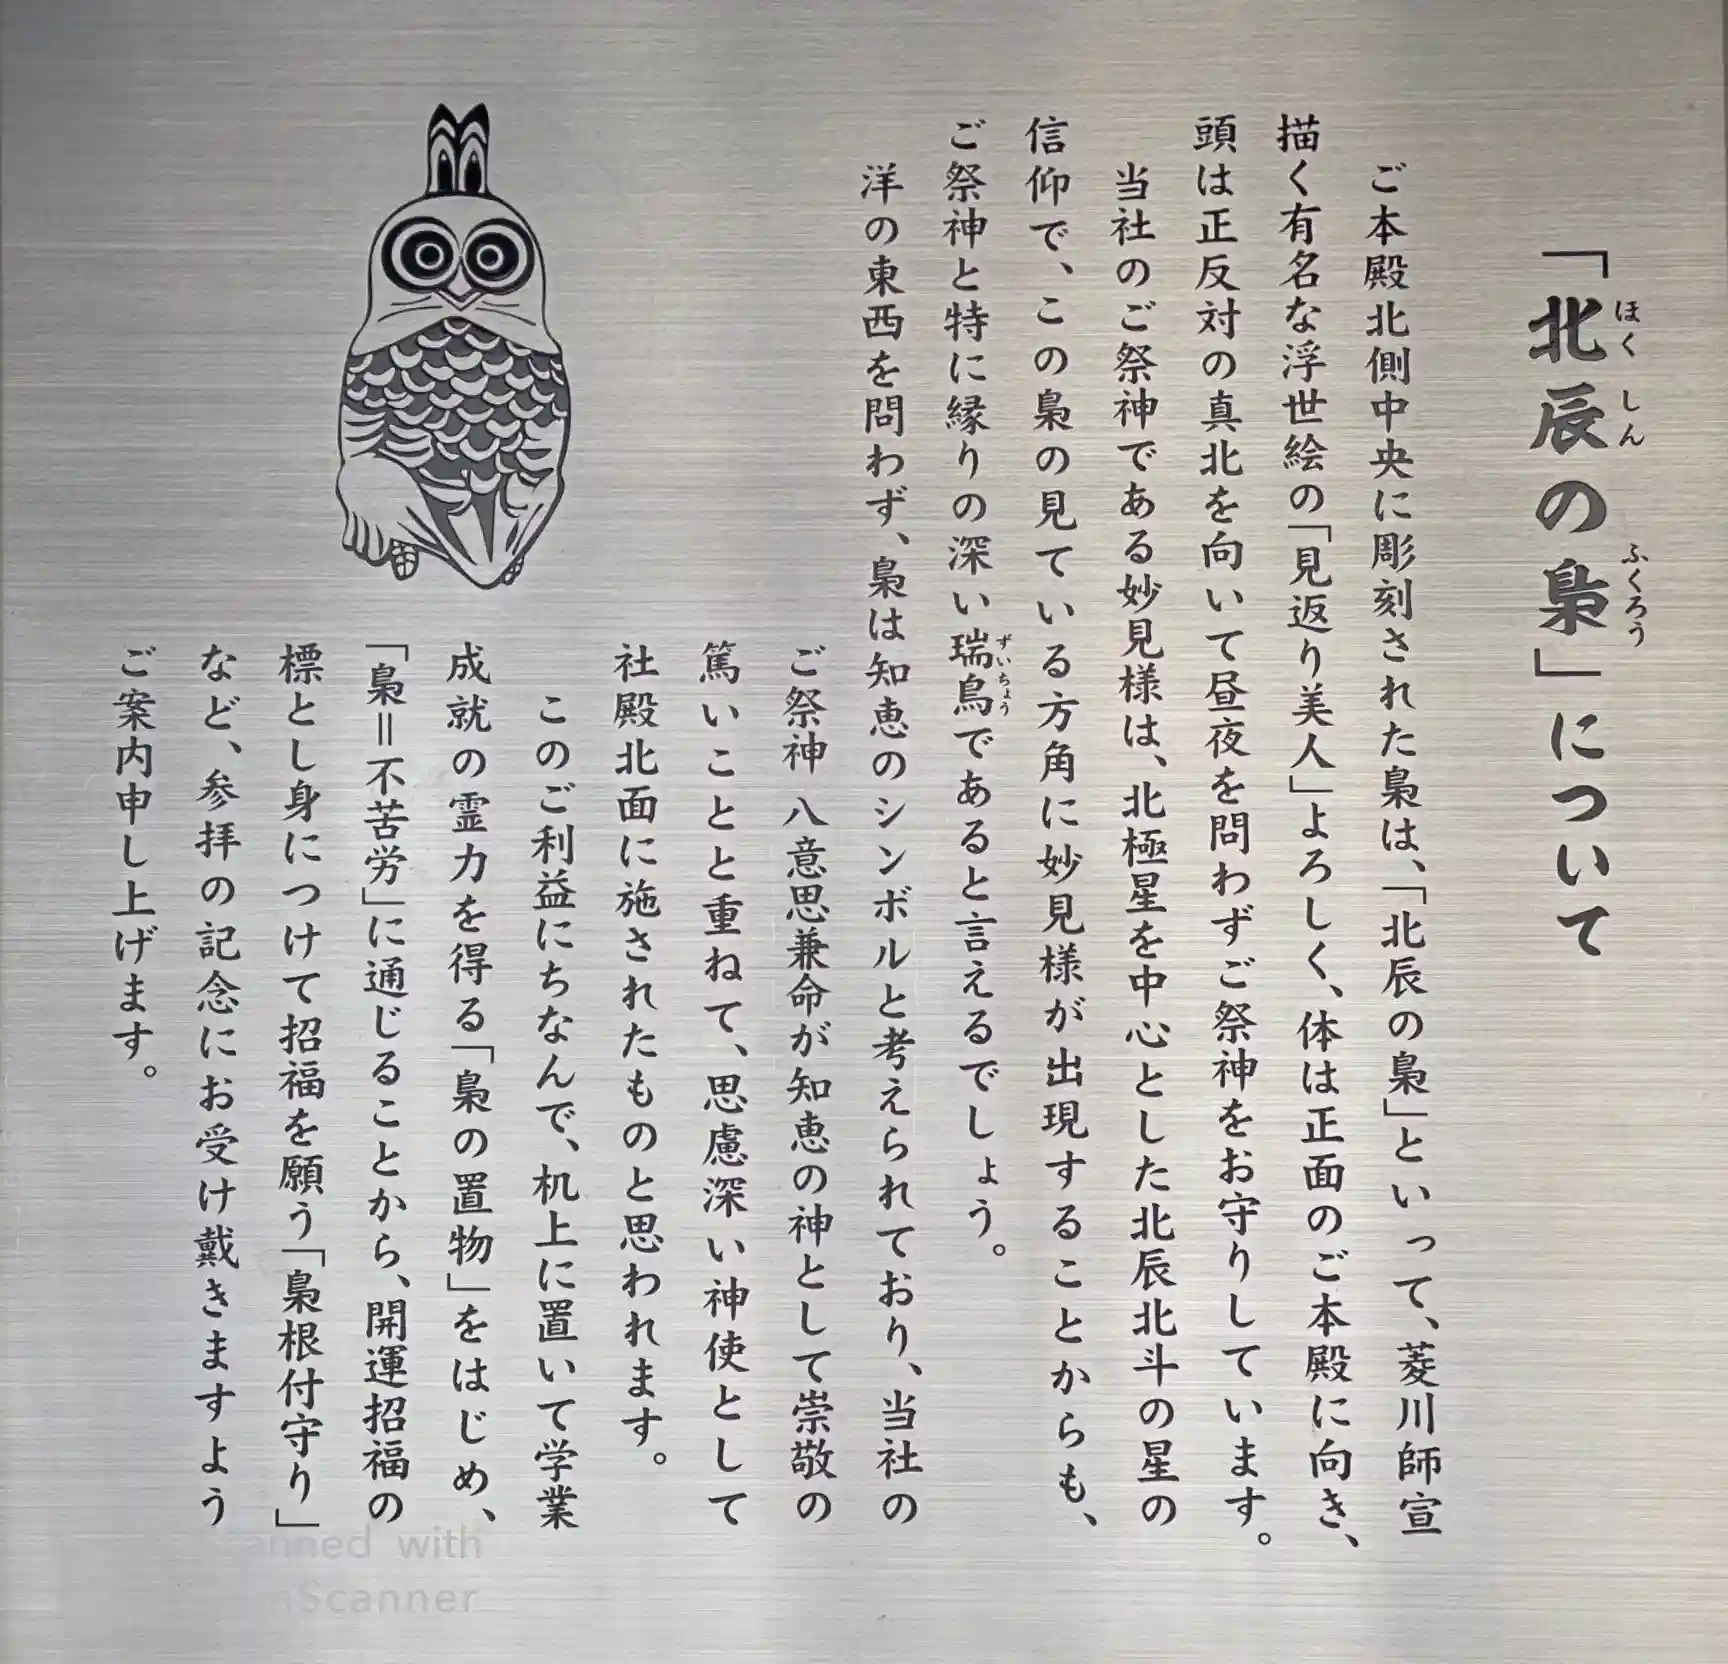 「北辰の梟」について
ほくしん ふくろう
ご本殿北側中央に彫刻された梟は、「北辰の梟」といって、菱川師宣
描く有名な浮世絵の「見返り美人」よろしく、体は正面のご本殿に向き、
頭は正反対の真北を向いて昼夜を問わずご祭神をお守りしています。
当社のご祭神である妙見様は、北極星を中心とした北辰北斗の星の
信仰で、この梟の見ている方角に妙見様が出現することからも、
ご祭神と特に縁りの深い瑞鳥であると言えるでしょう。
ずいちょう
洋の東西を問わず、梟は知恵のシンボルと考えられており、当社の
ご祭神 八意思兼命が知恵の神として崇敬の
篤いことと重ねて、思慮深い神使として
社殿北面に施されたものと思われます。
このご利益にちなんで、机上に置いて学業
成就の霊力を得る「梟の置物」をはじめ、
「梟=不苦労」に通じることから、開運招福の
標とし身につけて招福を願う「梟根付守り」
など、参拝の記念にお受け戴きますよう
ご案内申し上げます。
Scanned with
CamScanner